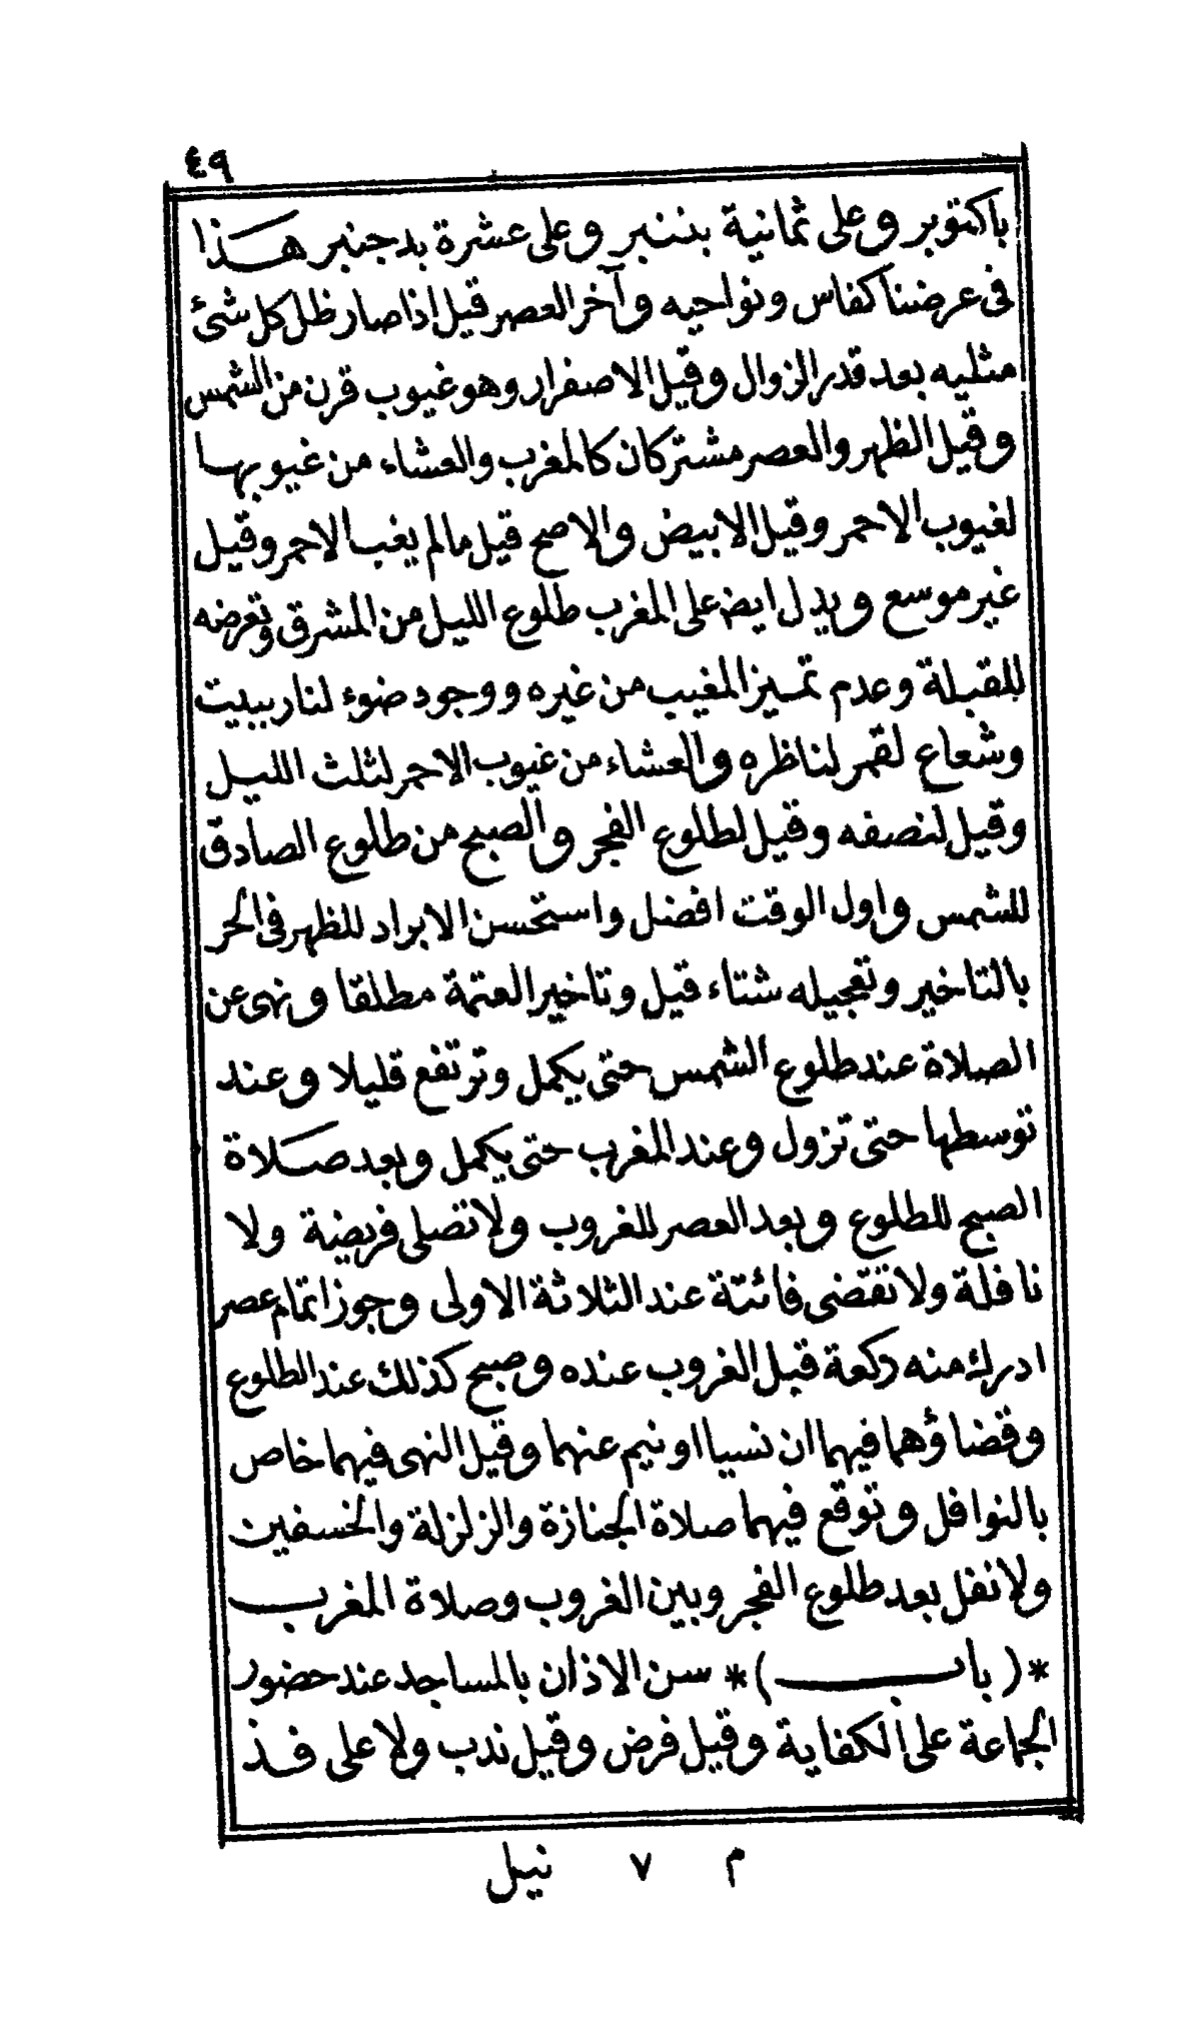 ٤٩
باكتوبر وعلى ثمانية بننبر وعلى عشرة بدجنبر هذا
فى عرضنا كفاس ونواحيه وآخر العصر قيل اذا صار ظل كل شئ
مثليه بعد قدر الزوال وقيل الاصفرار وهو غيوب قرن من الشمس
وقيل الظهر والعصر مشتركان كالمغرب والعشاء من غيوبها
لغيوب الاحمر وقيل الابيض والاصح قيل مالم يغب الاحمر وقيل
غير موسع ويدل ايض على المغرب طلوع الليل من المشرق وتعرضه
للقبلة وعدم تمييز المغيب من غيره ووجود ضوء لنار ببيت
وشعاع لقمر لناظره والعشاء من غيوب الاحمر لثلث الليل
وقيل لنصفه وقيل لطلوع الفجر والصبح من طلوع الصادق
للشمس واول الوقت افضل واستحسن الابراد للظهر فى الحر
بالتاخير وتعجيله شتاء قيل وتاخير العتمة مطلقا ونهى عن
الصلاة عند طلوع الشمس حتى يكمل وترتفع قليلا وعند
توسطها حتى تزول وعند المغرب حتى يكمل وبعد صلاة
الصبح للطلوع وبعد العصر للغروب ولا تصلى فريضة ولا
نافلة ولا تقضى فائتة عند الثلاثة الاولى وجوز اتمام عصر
ادرك منه ركعة قبل الغروب عنده وصبح كذلك عند الطلوع
وقضاؤهما فيهما ان نسيا او نيم عنهما وقيل النهى فيهما خاص
بالنوافل وتوقع فيهما صلاة الجنازة والزلزلة والخسفين
ولا نفل بعد طلوع الفجر وبين الغروب وصلاة المغرب
*(باب)* سن الاذان بالمساجد عند حضور
الجماعة على الكفاية وقيل فرض وقيل ندب ولا على فذ
م ٧ نيل